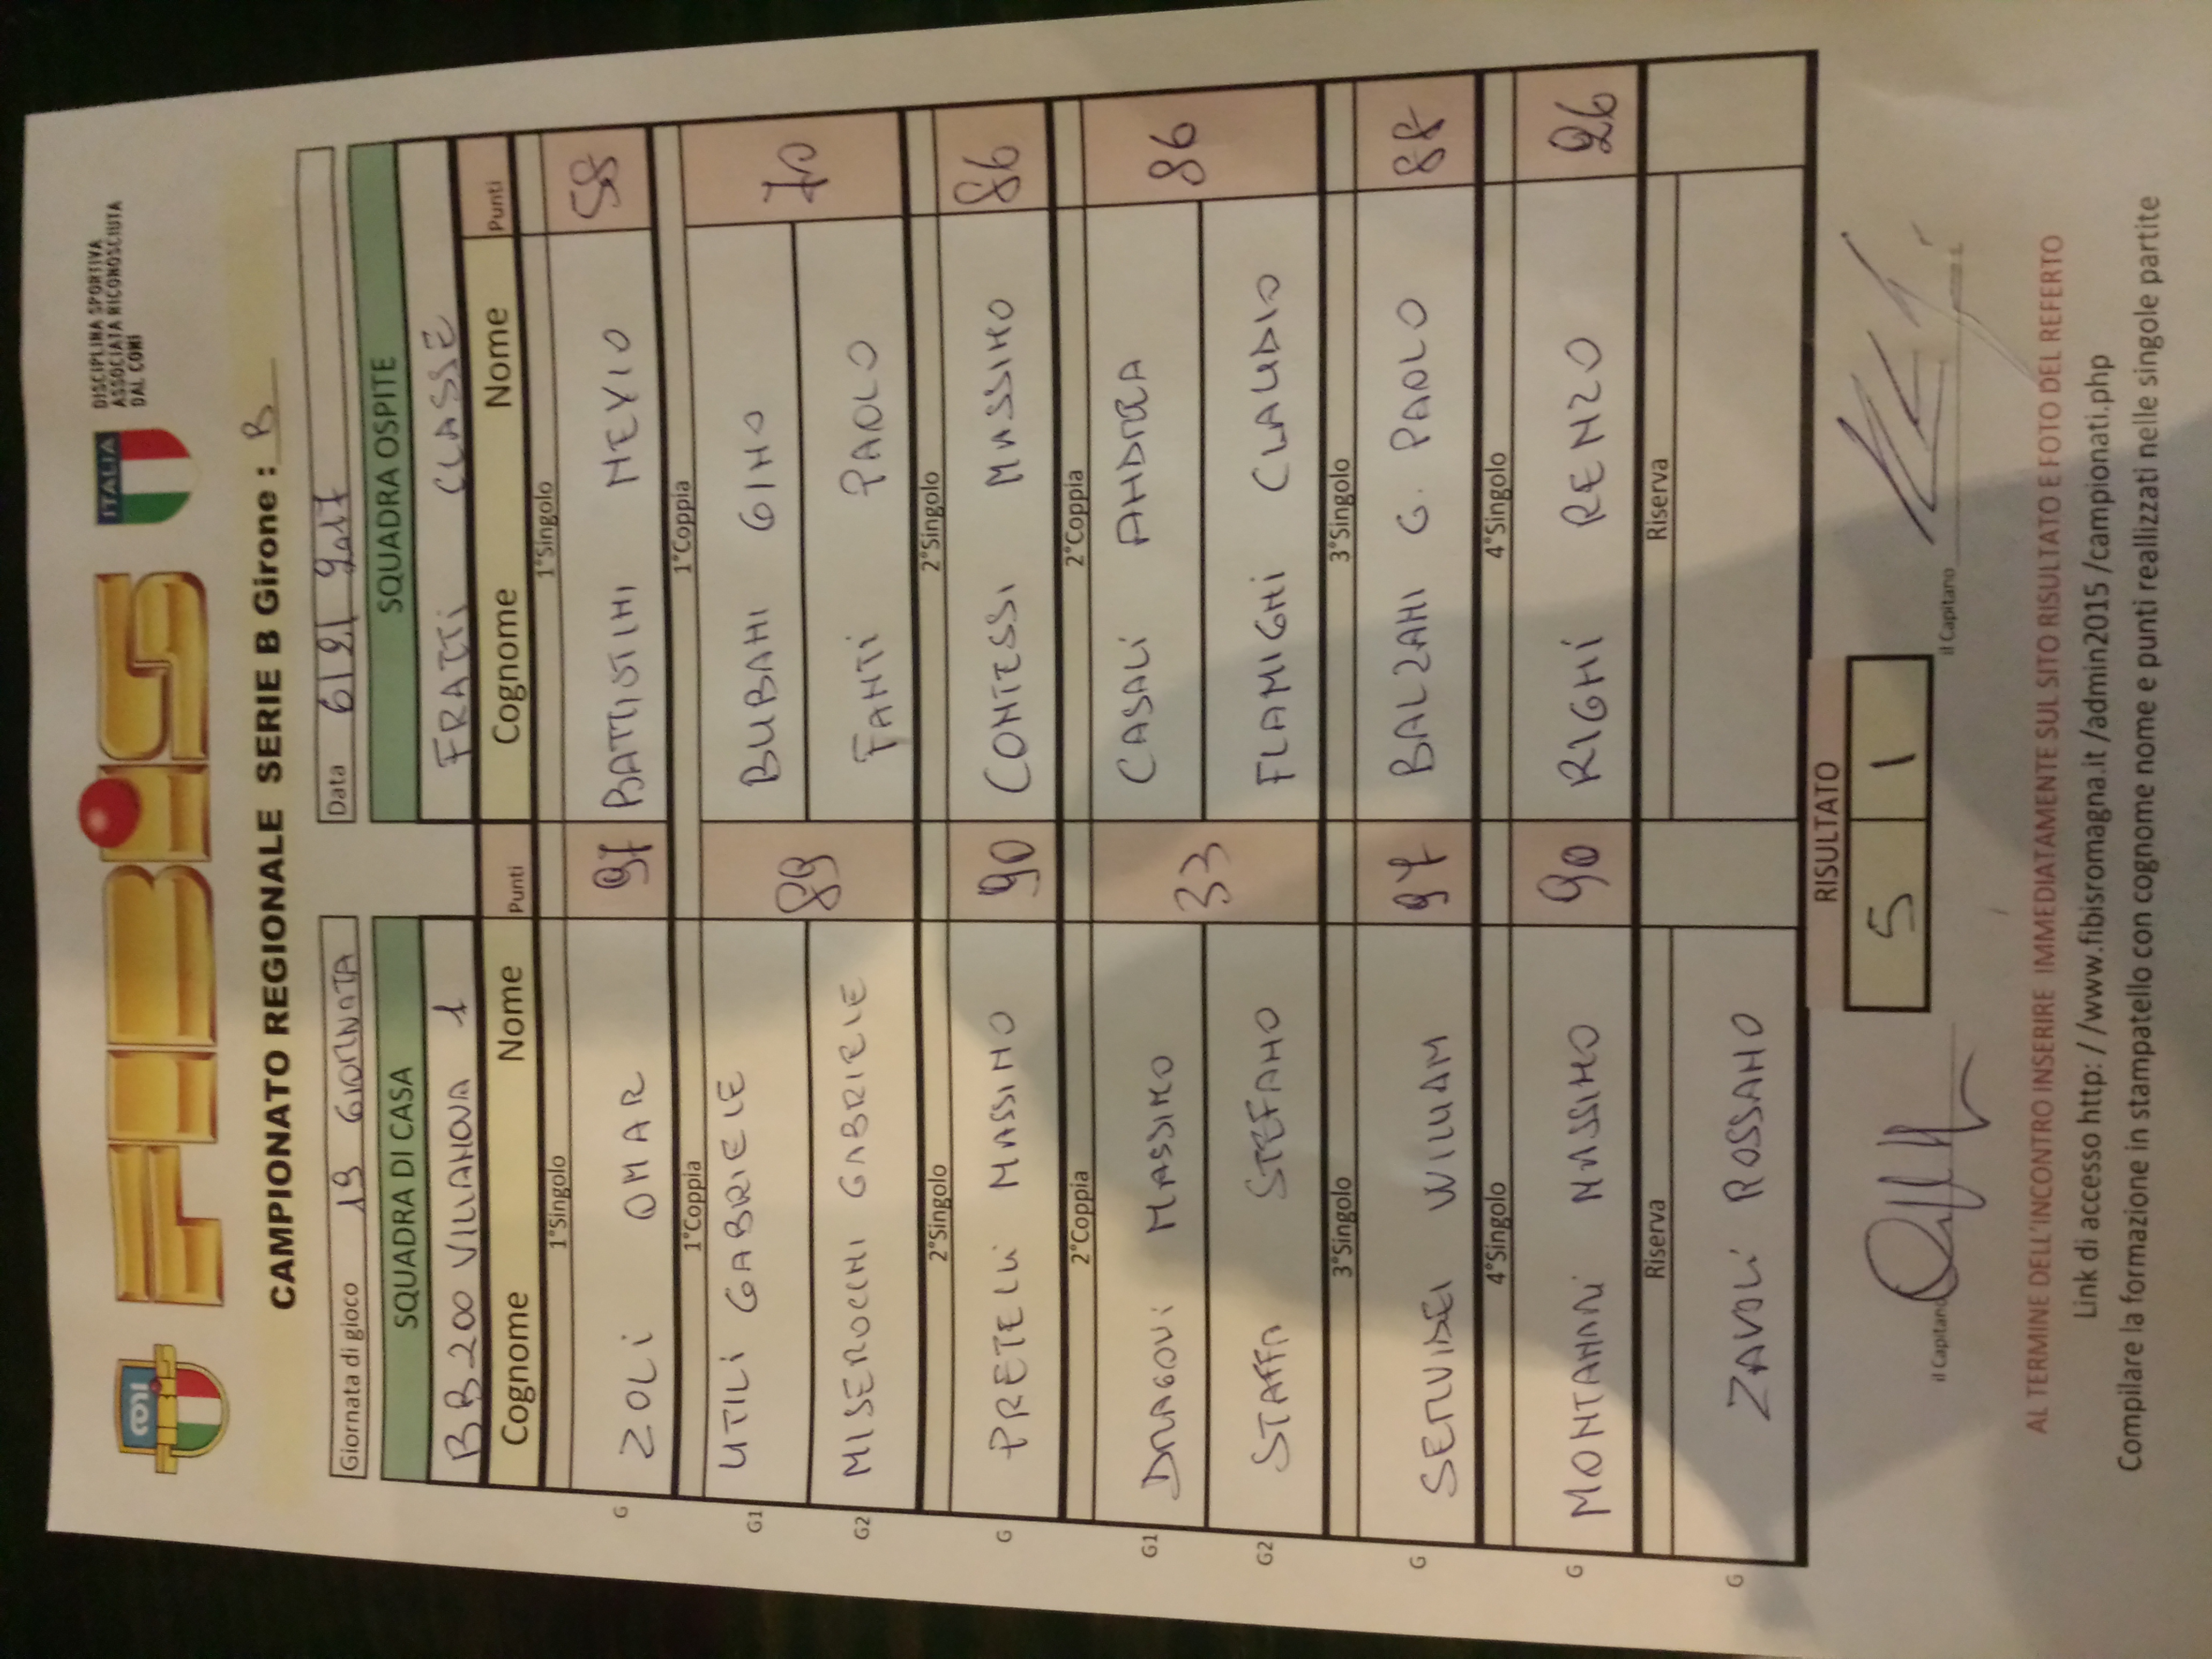 FIBIS
ITALIA
DISCIPLINA SPORTIVA
ASSOCIATA RICONOSCIUTA
DAL CONI
CAMPIONATO REGIONALE SERIE B Girone : B
Giornata di gioco 19 GIORNATA Data 6/2/2017
SQUADRA DI CASA SQUADRA OSPITE
BB 200 VILLANOVA 1 FRATTI CLASSE
Cognome Nome Punti Cognome Nome Punti
1°Singolo 1°Singolo
G ZOLI OMAR 97 BATTISTINI NEVIO 58
1°Coppia 1°Coppia
G1 UTILI GABRIELE 89 BUBANI GINO 70
G2 MISEROCCHI GABRIELE FANTI PAOLO
2°Singolo 2°Singolo
G PRETELLI MASSIMO 90 CONTESSI MASSIMO 86
2°Coppia 2°Coppia
G1 DRAGONI MASSIMO 33 CASALI ANDREA 86
G2 STAFFA STEFANO FLAMIGNI CLAUDIO
3°Singolo 3°Singolo
G SERVIDEI WILLIAM 97 BALZANI G. PAOLO 88
4°Singolo 4°Singolo
G MONTANARI MASSIMO 90 RIGHI RENZO 26
Riserva Riserva
G ZAVOLI ROSSANO
RISULTATO
5 1
il Capitano il Capitano
AL TERMINE DELL'INCONTRO INSERIRE IMMEDIATAMENTE SUL SITO RISULTATO E FOTO DEL REFERTO
Link di accesso http: / /www.fibisromagna.it /admin2015 /campionati.php
Compilare la formazione in stampatello con cognome nome e punti reallizzati nelle singole partite